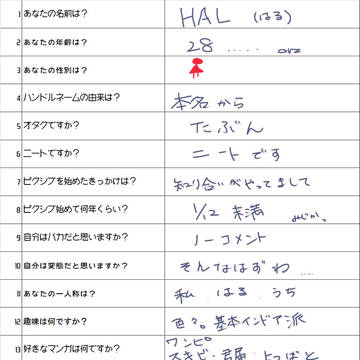 1 あなたの名前は？ HAL (はる)
2 あなたの年齢は？ 28 ..... orz
3 あなたの性別は？
4 ハンドルネームの由来は？ 本名から
5 オタクですか？ たぶん
6 ニートですか？ ニートです
7 ピクシブを始めたきっかけは？ 知り合いがやってまして
8 ピクシブ始めて何年くらい？ 1/12 未満 みじかっ
9 自分はバカだと思いますか？ ノーコメント
10 自分は変態だと思いますか？ そんなはずわ....
11 あなたの一人称は？ 私 はる うち
12 趣味は何ですか？ 色々。基本インドア派
13 好きなマンガは何ですか？ ワンピ
スキビ・君届